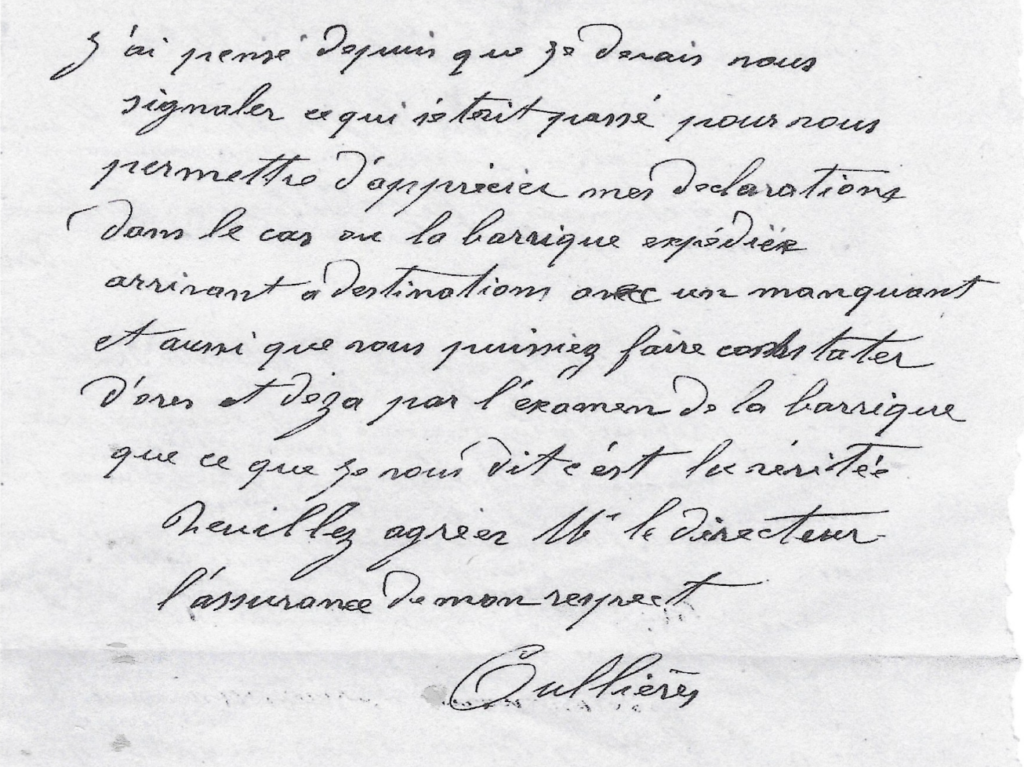 J'ai pensé depuis que je devais vous
signaler ce qui s'était passé pour vous
permettre d'apprécier mes declarations
dans le cas ou la barrique expédiée
arrivant a destinations avec un manquant
et aussi que vous puissiez faire constater
d'ores et deja par l'éxamen de la barrique
que ce que je vous dit c'est la véritée
Veuillez agréer Mr le directeur
l'assurance de mon respect